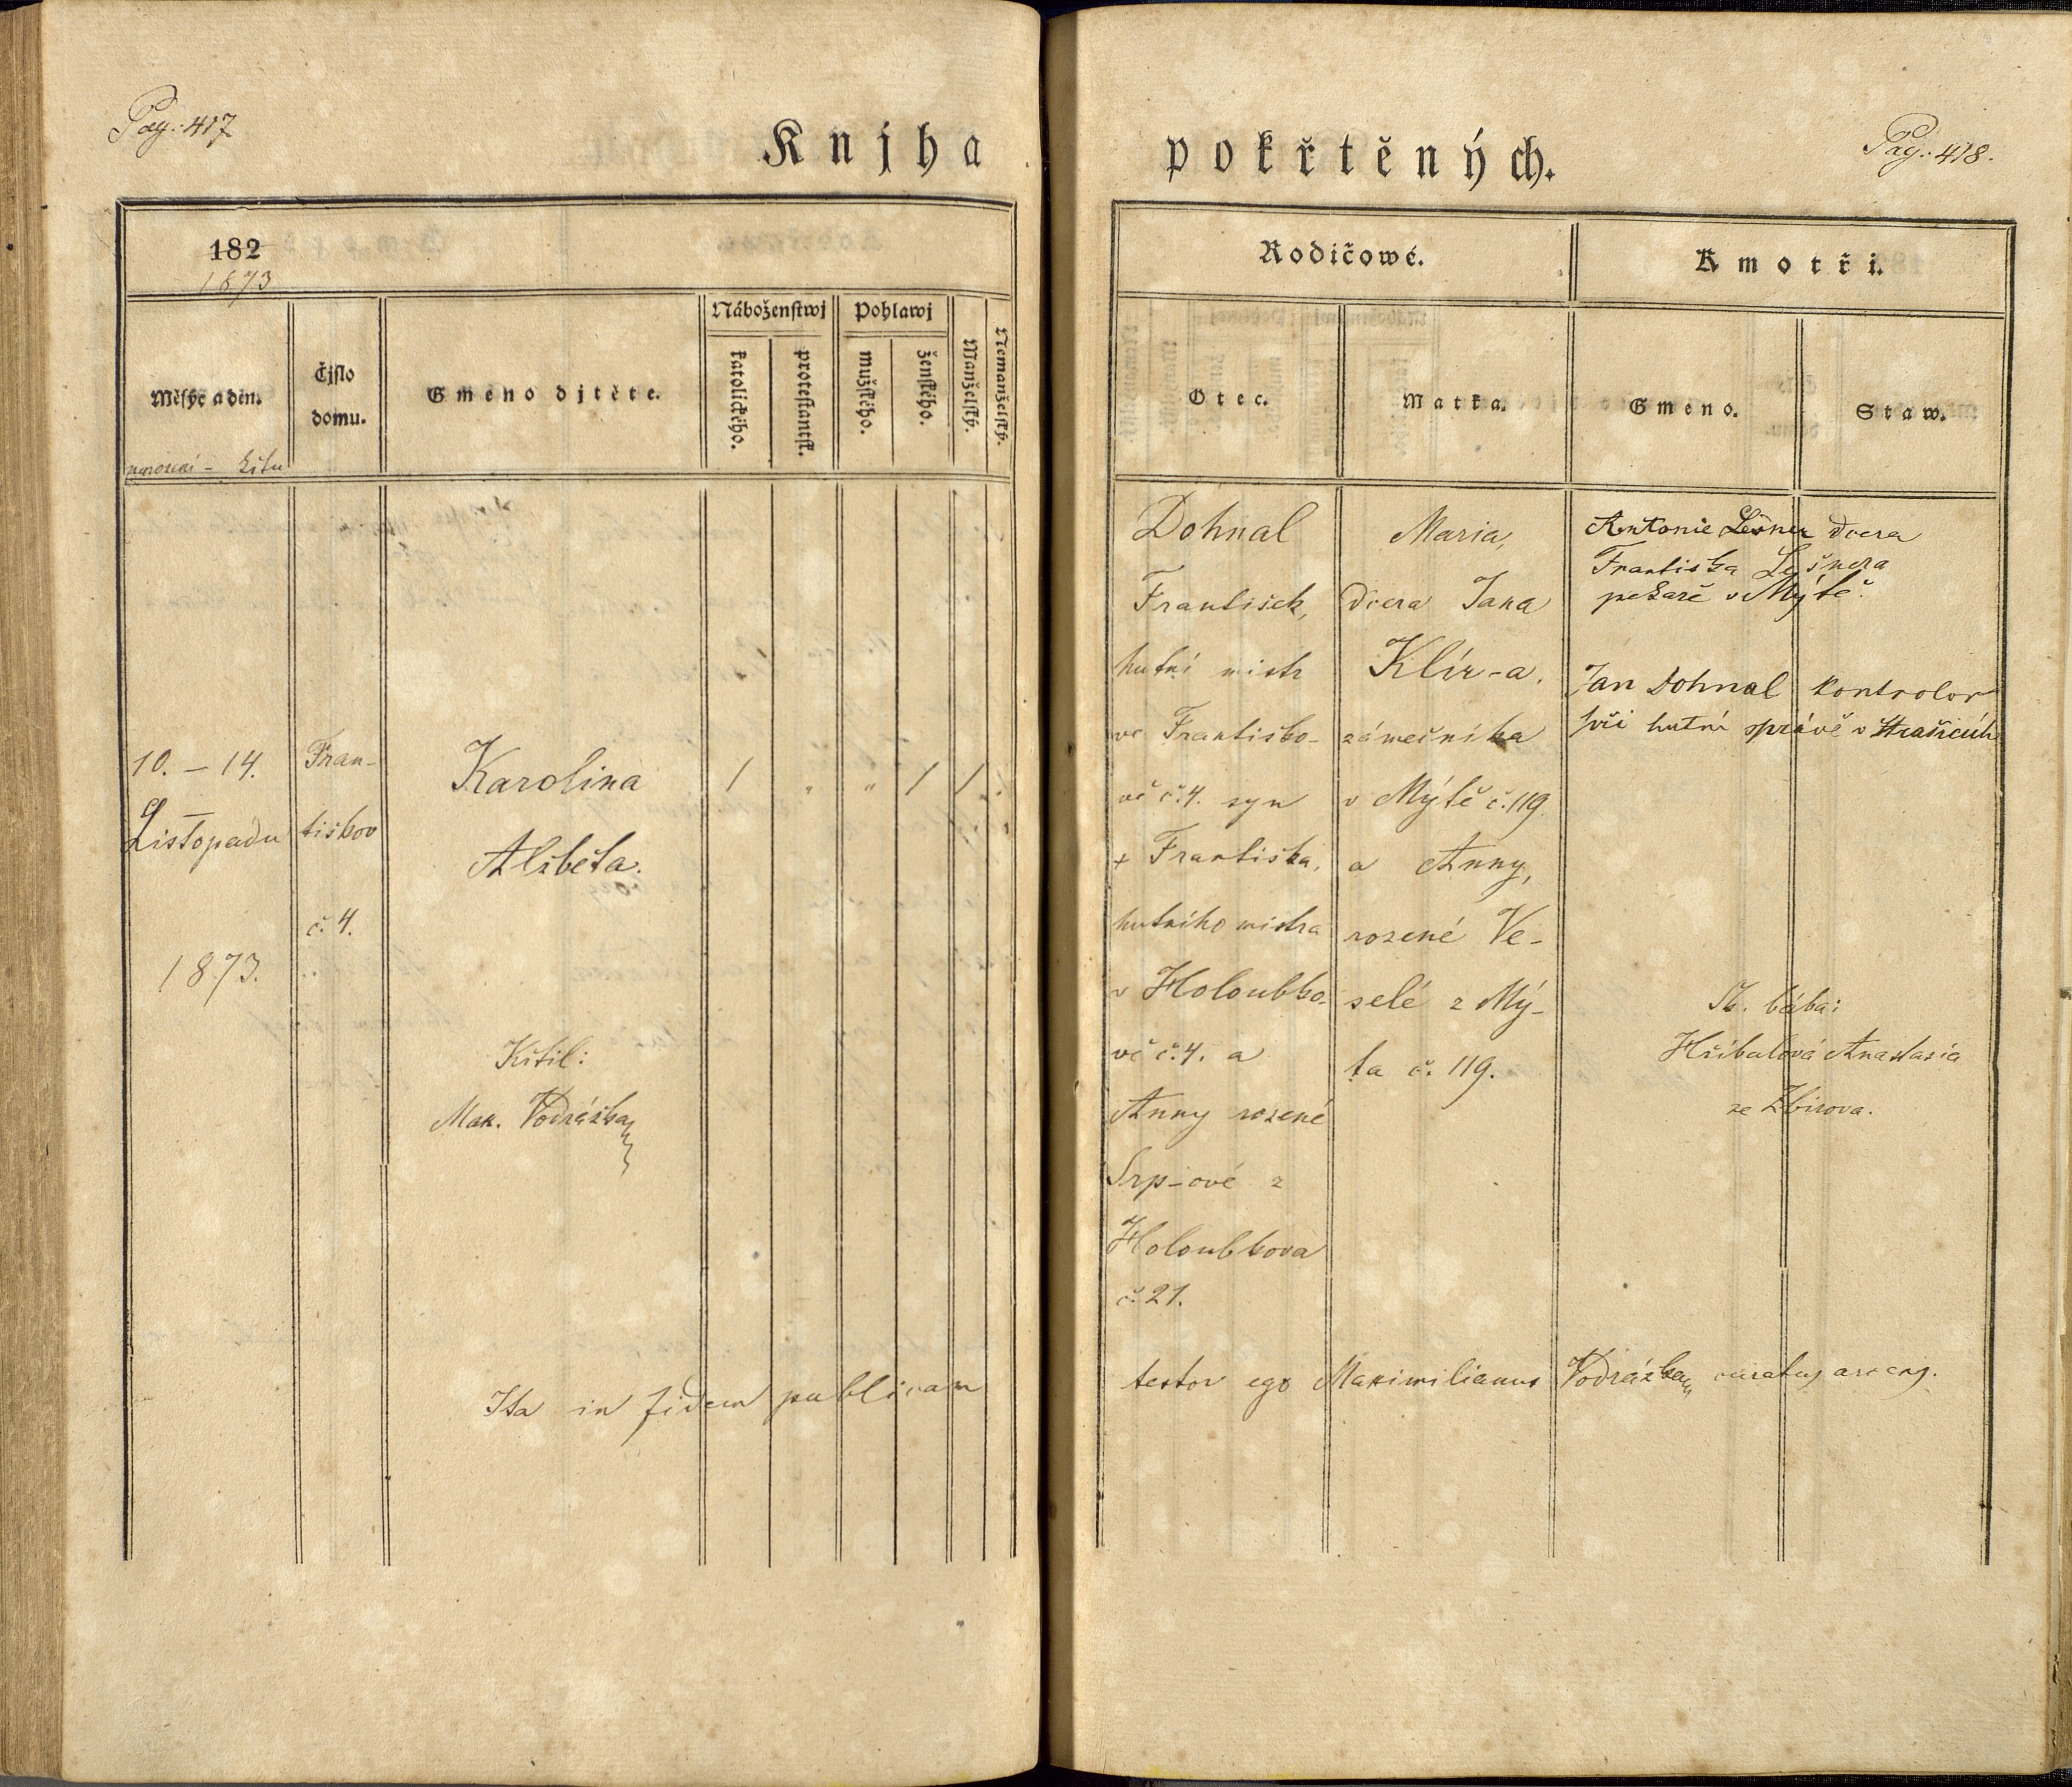 Pag: 417
Knjha
182
1873
Měsýc a den.
narození - křtu
Čjslo
domu.
Gméno djtěte.
Náboženstwj
katolického.
protestantsk.
Pohlawj
mužského.
ženského.
Manželský.
Nemanželský.
10. – 14.
Listopadu
1873.
Fran-
tiškov
č. 4.
Karolina
Alžběta.
1 " " 1 1 .
Křtil:
Max. Vodrážka
Ita in fidem publicam
pokřtěných.
Pag: 418.
Rodičowé.
Kmotři.
Otec.
Matka.
Gméno.
Staw.
Dohnal
František,
hutní mistr
ve Františko-
vě č. 4. syn
+ Františka,
hutního mistra
v Holoubko-
vě č. 4. a
Anny rozené
Srp-ové z
Holoubkova
č. 21.
Maria,
dcera Jana
Klír-a,
zámečníka
v Mýtě č. 119.
a Anny,
rozené Ve-
selé z Mý-
ta č. 119.
Antonie Lešner dcera
Františka Lešnera
pekaře v Mýtě.
Jan Dohnal kontrolor
při hutní správě v Strašicích
bába:
Hříbalová Anastasia
ze Zbirova.
testor ego Maximilianus Vodrážka curatus